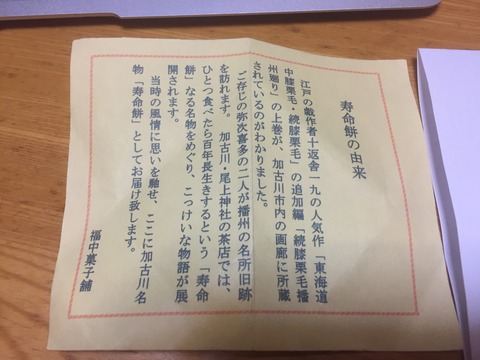 寿命餅の由来
江戸の戯作者十返舎一九の人気作「東海道
中膝栗毛・続膝栗毛」の追加編「続膝栗毛播
州廻り」の上巻が、加古川市内の画廊に所蔵
されているのがわかりました。
ご存じの弥次喜多の二人が播州の名所旧跡
を訪れます。加古川・尾上神社の茶店では、
ひとつ食べたら百年長生きするという「寿命
餅」なる名物をめぐり、こっけいな物語が展
開されます。
当時の風情に思いを馳せ、ここに加古川名
物「寿命餅」としてお届け致します。
福中菓子舗